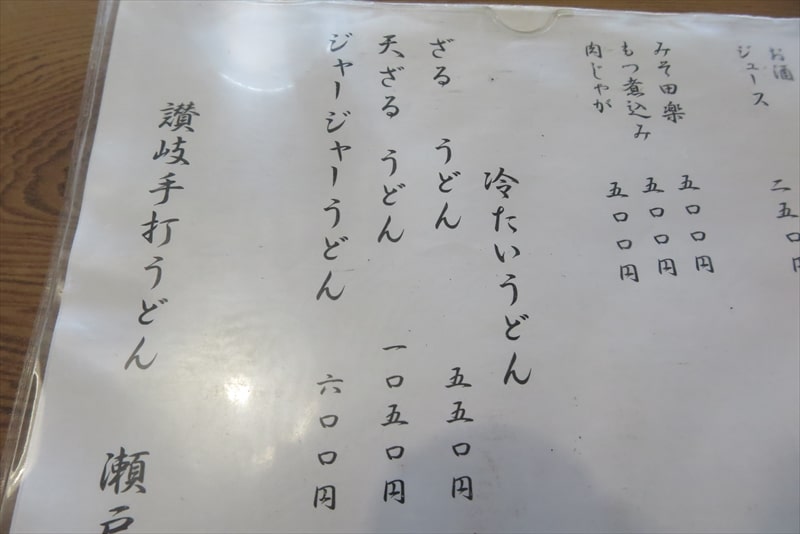 お酒
ジュース 二五〇
みそ田楽 五〇〇円
もつ煮込み 五〇〇円
肉じゃが 五〇〇円
冷たいうどん
ざる うどん 五五〇円
天ざる うどん 一〇五〇円
ジャージャーうどん 六〇〇円
讃岐手打うどん 瀬戸